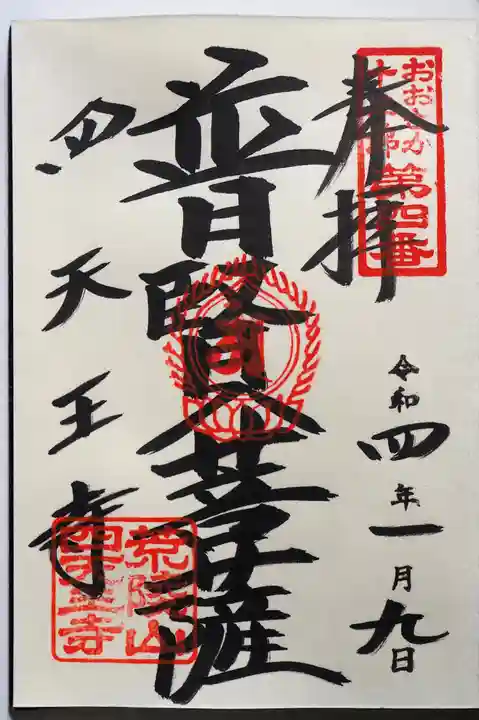 おおさか
十三佛
第四番
奉拝
令和四年一月九日
普賢菩薩
四天王寺
荒陵山
四天王寺